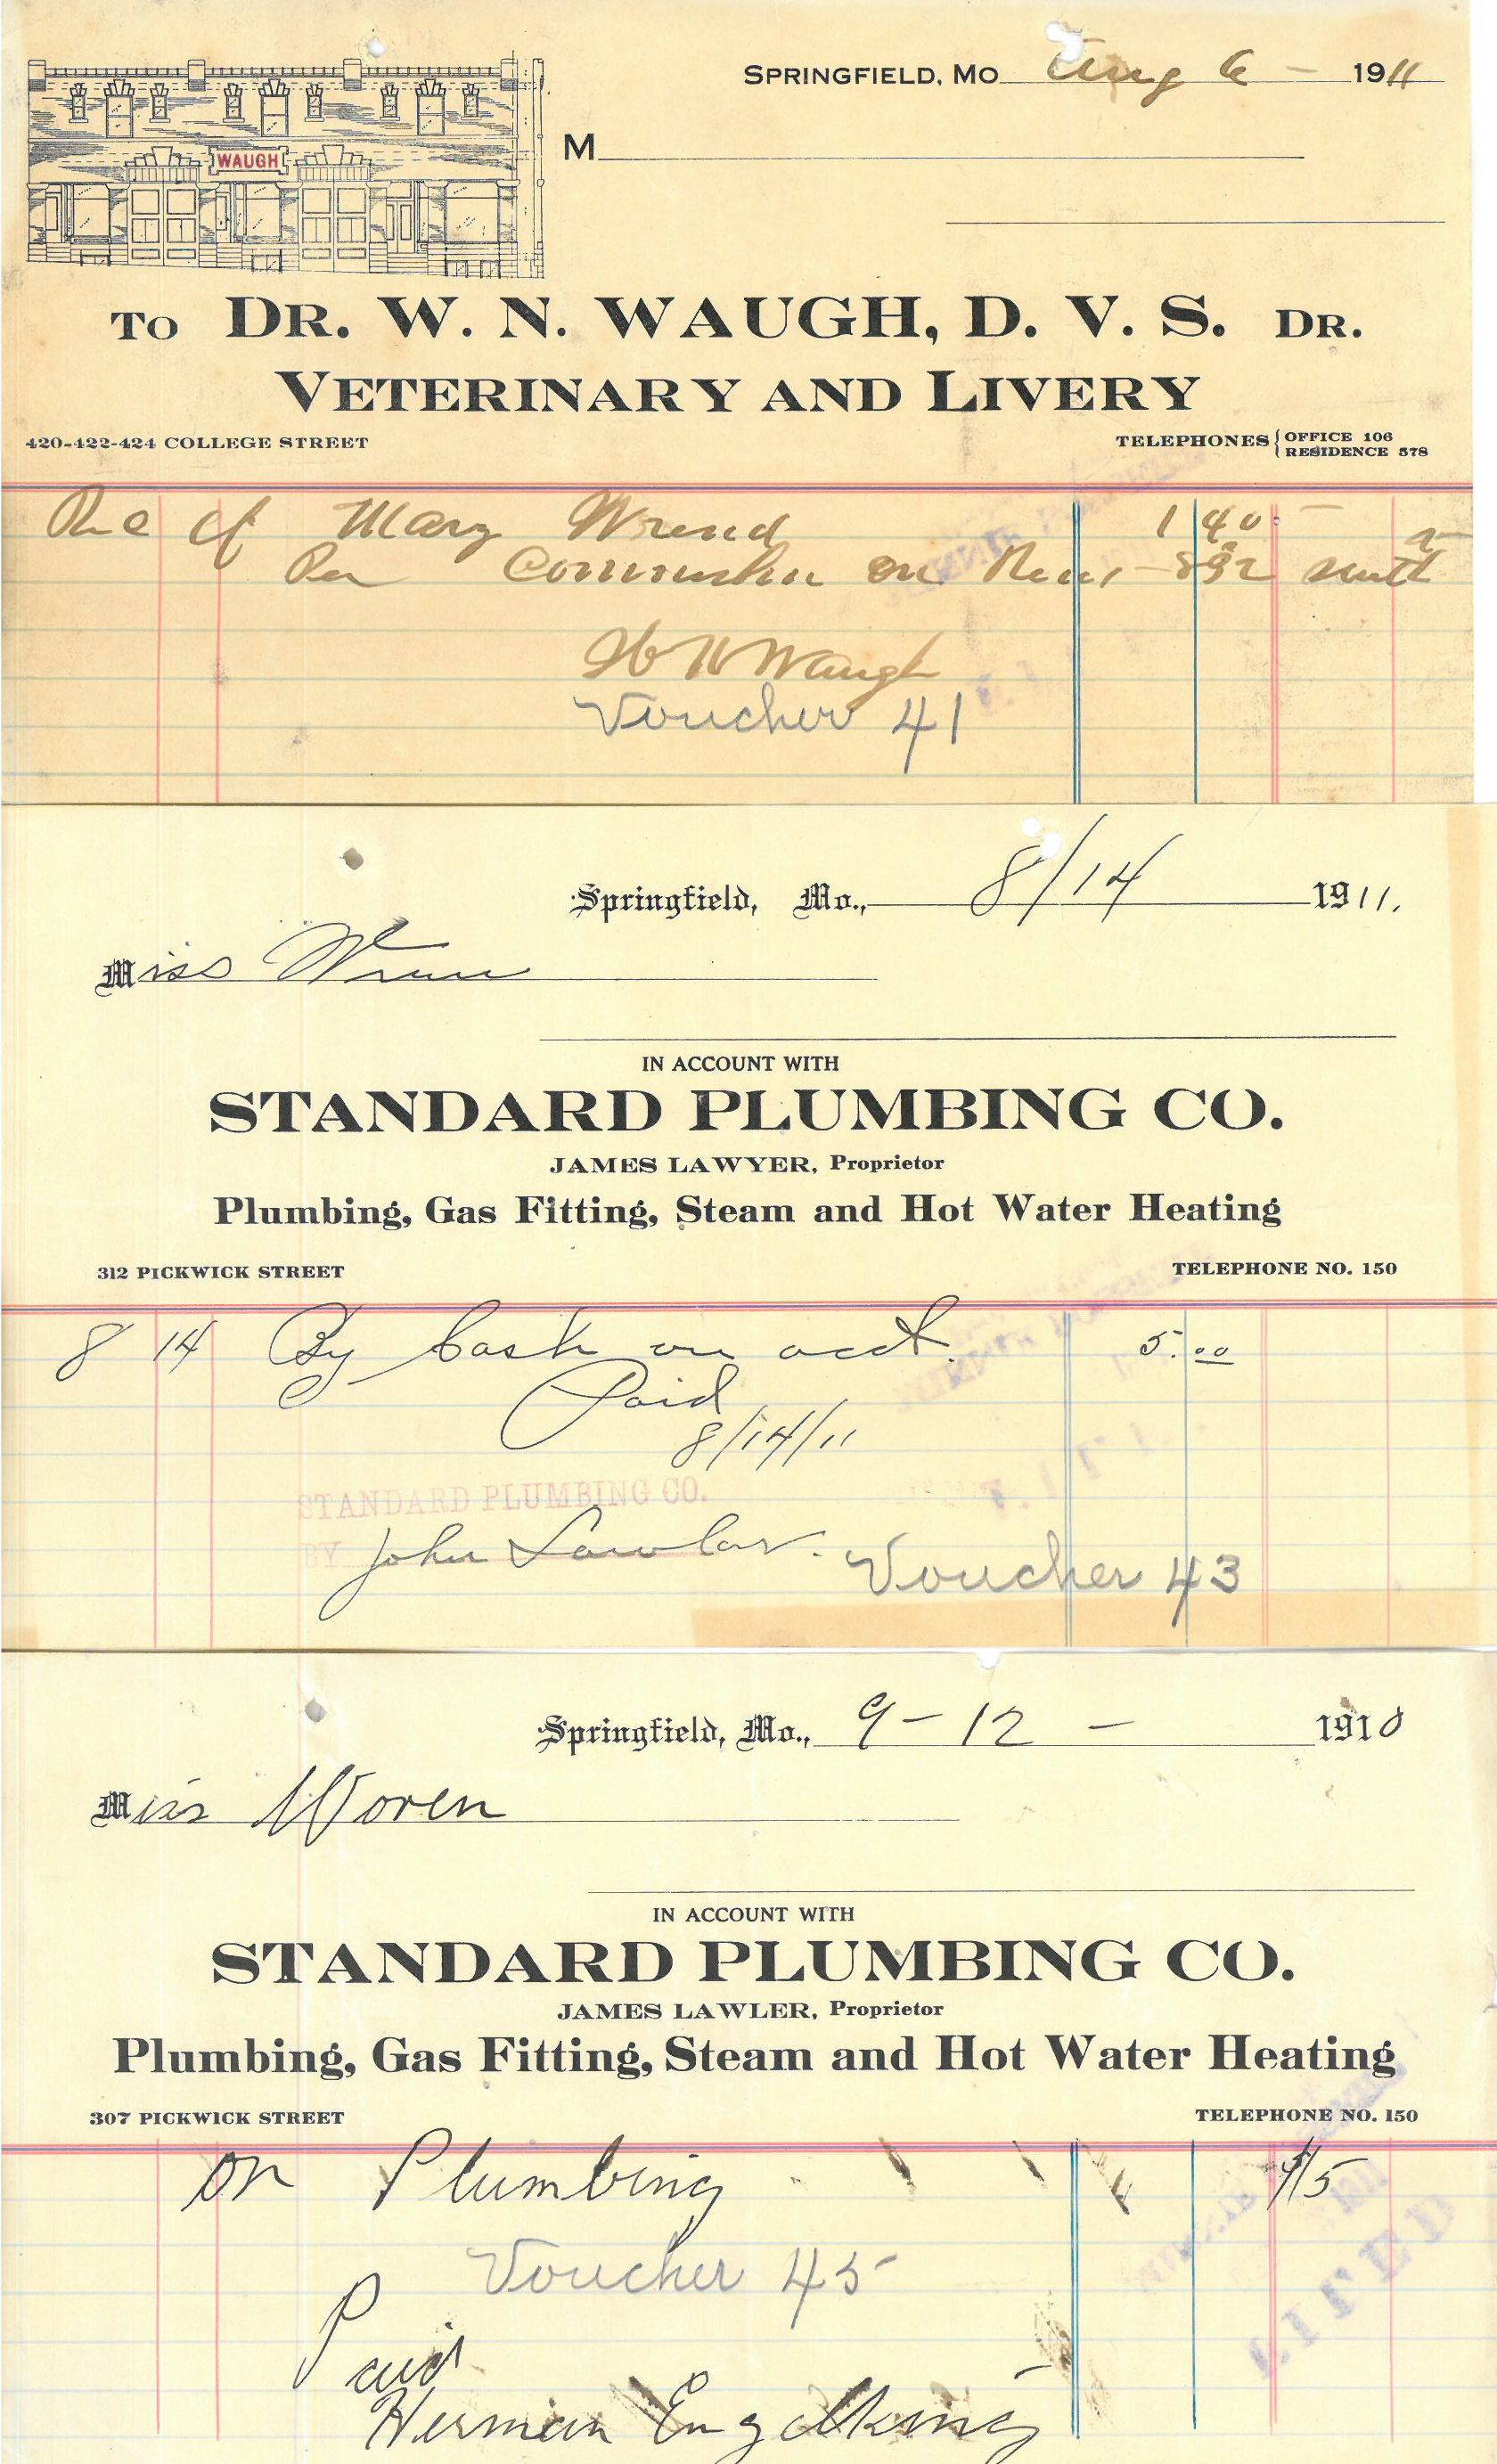 SPRINGFIELD, MO Aug 6 - 1911
WAUGH
M
TO DR. W. N. WAUGH, D. V. S. DR.
VETERINARY AND LIVERY
420-422-424 COLLEGE STREET
TELEPHONES { OFFICE 106
RESIDENCE 578
Rec of Mary 1 40
Commission on
W N Waugh
Voucher 41
Springfield, Mo., 8/14 1911.
Miss
IN ACCOUNT WITH
STANDARD PLUMBING CO.
JAMES LAWYER, Proprietor
Plumbing, Gas Fitting, Steam and Hot Water Heating
312 PICKWICK STREET TELEPHONE NO. 150
8 14 By Cash on acct. 5.00
Paid
8/14/11
STANDARD PLUMBING CO.
BY John Lawler.
Voucher 43
Springfield, Mo., 9-12- 1910
Miss Woren
IN ACCOUNT WITH
STANDARD PLUMBING CO.
JAMES LAWLER, Proprietor
Plumbing, Gas Fitting, Steam and Hot Water Heating
307 PICKWICK STREET TELEPHONE NO. 150
on Plumbing
Voucher 45
Paid
Herman Engelking